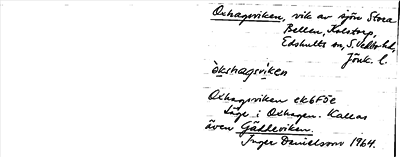 Oxhagsviken, vik av sjön Stora
Bellen, Kolstorp,
Edshults sn, S. Vedbo hd,
Jönk. l.
òkshagsvi̇ken
Oxhagsviken ek6F5e
Läge i Oxhagen. Kallas
även Gäddeviken.
Inger Danielsson 1964.